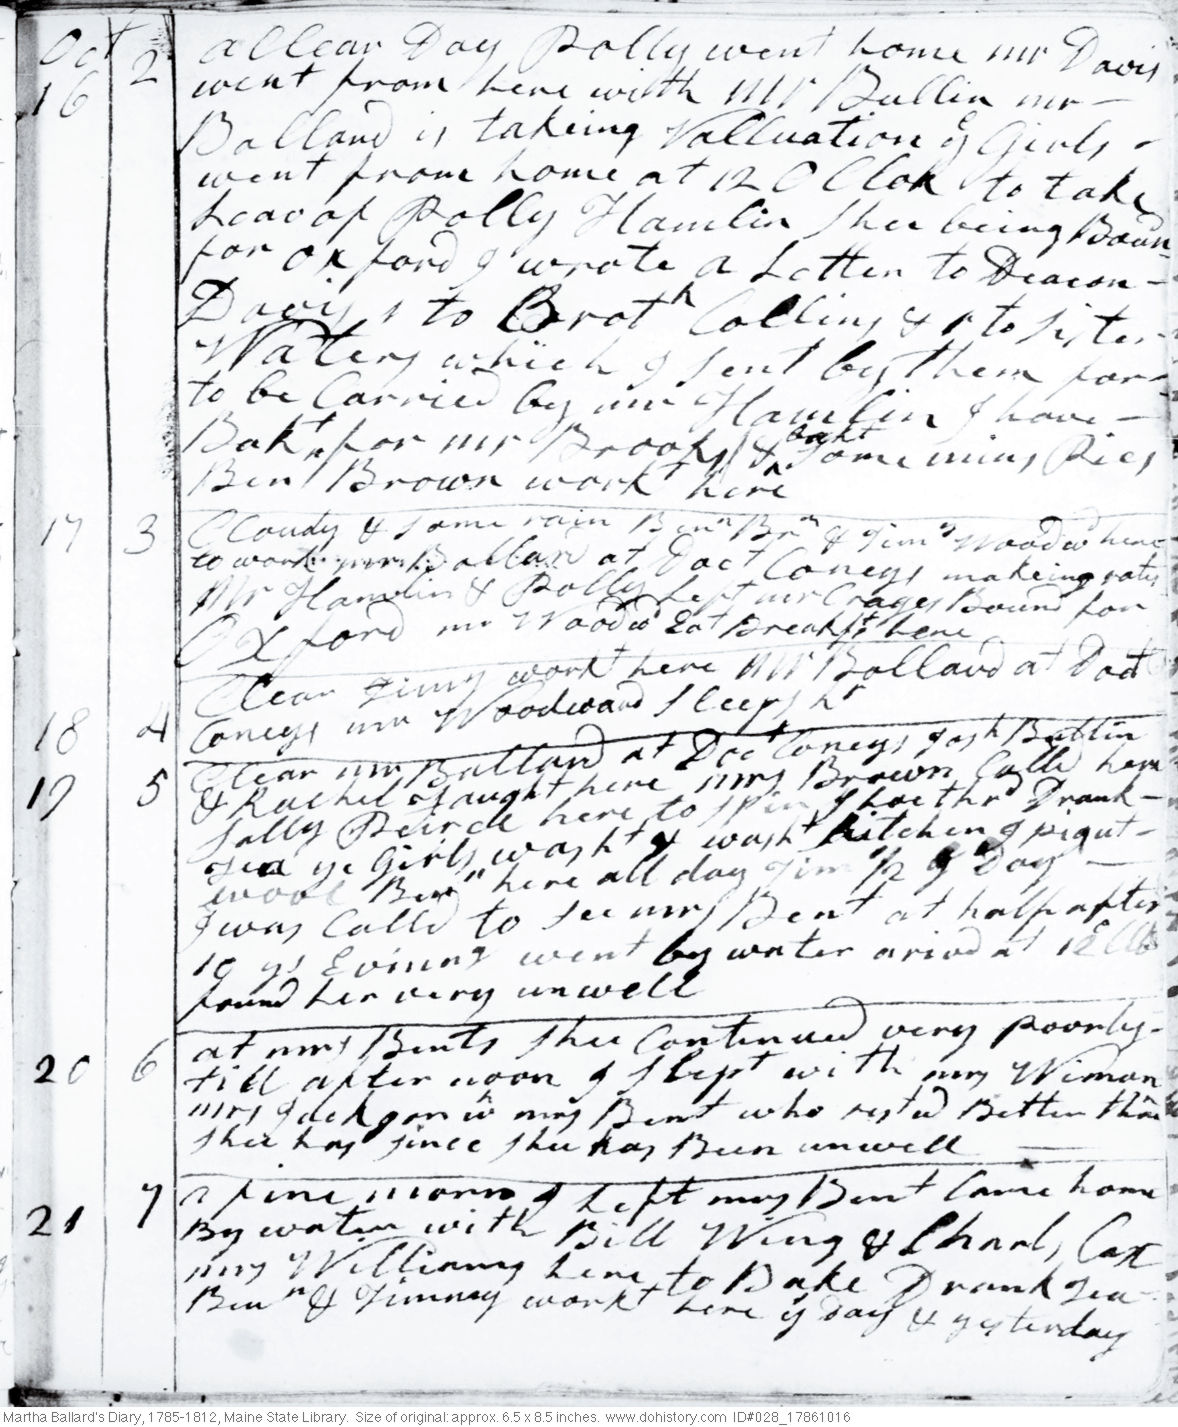 Oct 16 2 a Clear Day Polly went home mr Davis
went from here with Mr Bullin mr
Ballard is takeing Valluation ye Girls
went from home at 12 O Clok to take
Leav of Polly Hamlin Shee being Boun
for Oxford I wrote a Letter to Deacon
Davis 1 to Brothr Collins & 1 to Sister
Waters which I sent by them for
to be Carried by mr Hamlin I have
Bakt for mr Brooks & bakt some mins Pies
Ben Brown workt here
17 3 Cloudy & some rain Benn Brn & Jimy Woodwd here
to work mr Ballard at Doct Coneys makeing rates
Mr Hamlin & Polly Left mr Crages Bound for
Oxford mr Woodwd Eat Breakft here
Clear Jimy workt here Mr Ballard at Doct
18 4 Coneys mr Woodward Sleeps hr
19 5 Clear mr Ballard at Doct Coneys Josh Buttin
& Rachel Taught here mrs Brown Calld here
Sally Peirce here to spin Drank
Tea ye Girls washt & washt kitchen I pict
wool Benn here all day Jim 1/2 ye Day
I was Calld to see mrs Bent at half after
10 ys Evinng went by water arivd at 12
found her very unwell
20 6 at mrs Bents Shee Continued very poorly
till after noon I Slept with mrs Wiman
mrs Jackson wh mrs Bent who restd Better than
shee has since shee has Been unwell
21 7 a fine morn I Left mrs Bent Came home
By water with Bill Wing & Charls Cox
mrs Williams here to Bake Drank Tea
Benn & Jimmy workt here ys day & yesterday
Martha Ballard's Diary, 1785-1812, Maine State Library. Size of original: approx. 6.5 x 8.5 inches. www.dohistory.com ID#028_17861016